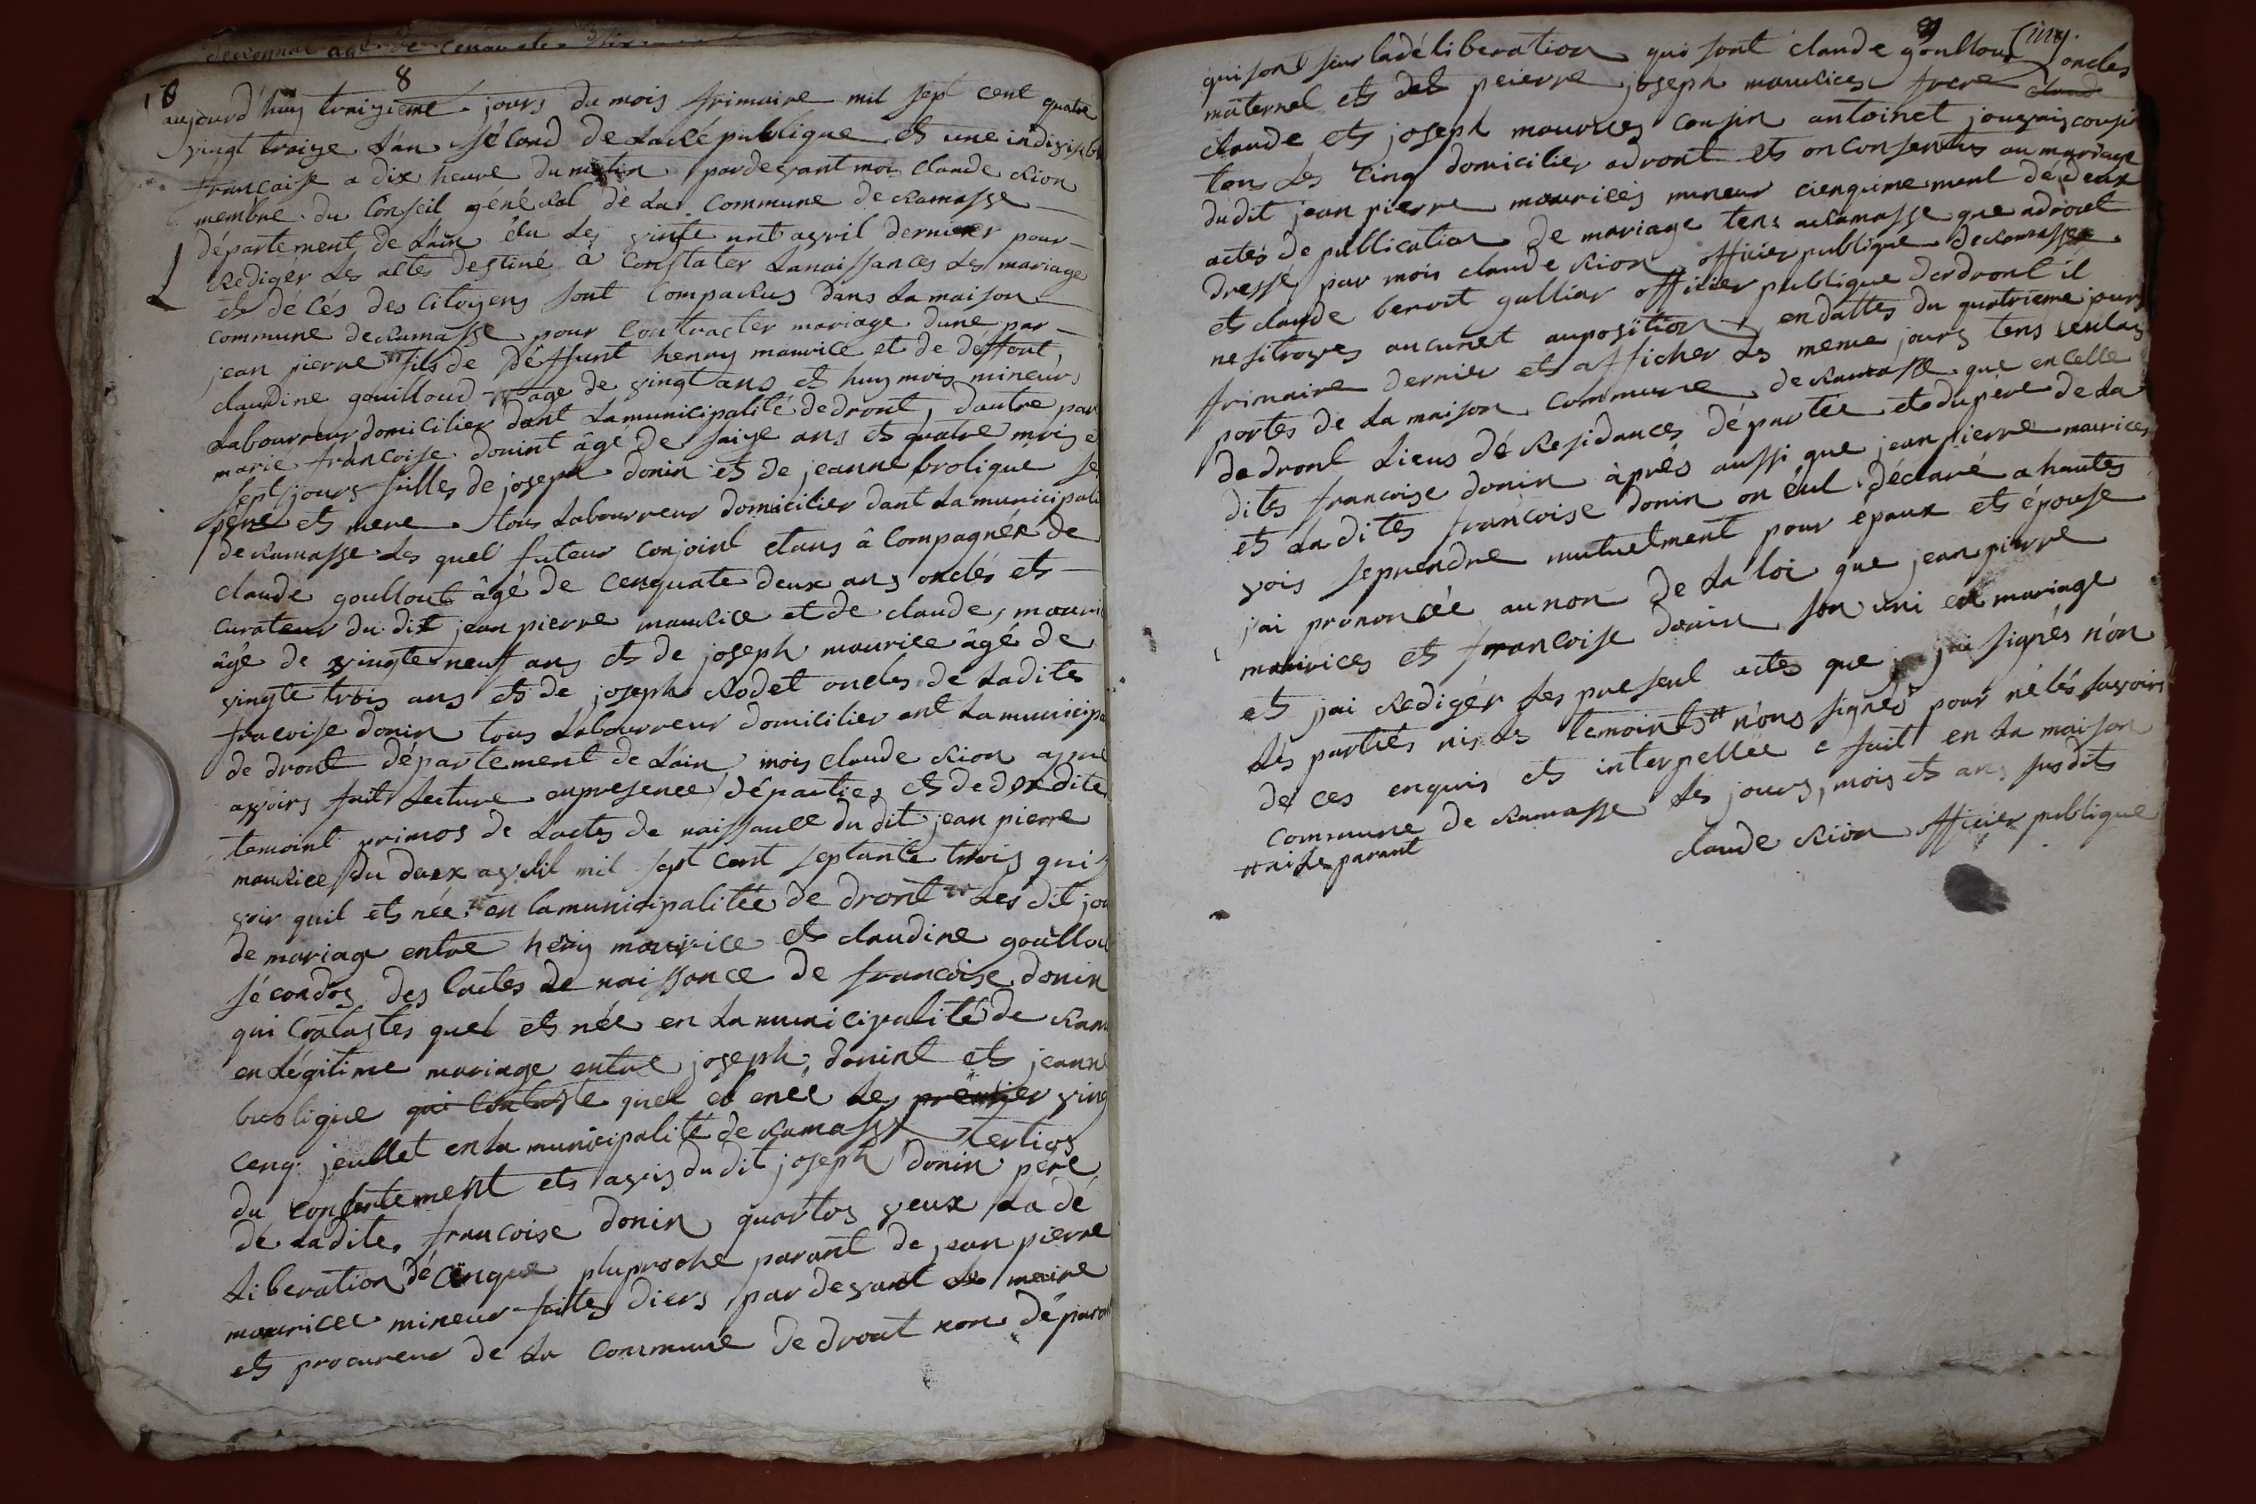 8
aujourd'huy traizieme jours du mois frimaire mil sept cent quatre
vingt traize l'an sécond de la république et une indivisib
francaise a dix heure du matin pardevant moi claude Rion
membre du Conseil général dé la Commune de Ramasse
département de l'ain élu les vinte unt avril dernier pour
Rediger les actes destiné à Constater la naissances les mariage
et décés des citoyens sont Comparus dans la maison
commune de Ramasse pour Contracter mariage dune par
jean pierre fils de déffunt henry maurice et de deffont
claudine gouilloud age de vingt ans et huy mois mineur
Labourreur domicilier dant la municipalité de dront, dautre par
marie francoise donint âgé de saize ans et quatre mois è
sept jours filles de joseph donin et de jeanne brolique se
père et mere tous Labourreur domicilier dant la municipali
de Ramasse les quel futeur conjoint etans â Compagnér de
claude goullout âgé de cenquate deux ans oncles et
curateur du dit jean pierre maurice et de claude, mauri
âgé de vingte neuf ans et de joseph maurice âgé de
vingte trois ans et de joseph Rodet oncles de ladites
fracoise donin tous Labourreur domicilier ent la municipa
de dront département de l'ain mois claude Rion apre
avoirs fait Lecture enpresence départies et de dx dite
temoint primos de Lactes de naissance du dit jean pierre
maurices du deux avril mil sept cent septante trois qui
voir quil ets née en la municipalitée de dront les dit jou
de mariage entre heny maurice et claudine goullou
sécondos des lactes de naissance de francoise donin
qui Contastes quel ets née en la municipalité de Ram
en légitime mariage entre joseph donint et jeanne
brolique qui Contaste quel et enee les premier ving
cenq jeullet en la municipalité de Ramasse tertios
du consentement ets avis du dit joseph donin père
dé ladite francoise donin quartos veux la dé
Liberation dé cinque pluproche parant de jean pierre
mauricee mineur faites diers pardevant le maire
ets procureur de la Commune de dront non déparo
cinq
qui sont sur la déliberation qui sont claude goulloud oncles
maternel ets det peierre joseph maurices frere claud
claude ets joseph maurices cousin antoinet jouvais cousi
tous les cinq domicilier adront ets on consentus au mariage
dudit jean pierre maurices mineur cienquimement de deux
actés de publication de mariage tens a Ramasse que adront
dressé par mois claude Rion officier publique de Ramasse
ets claude benoit galliar officier publique derdront il
ne sitroves aucunet auposition endattes du quatrieme jours
frimaire dernier ets afficher les meme jours tens
portes de la maison commune de Ramasse que en celle
de dront Lieus dé Residances départée ets du père de la
dites francoise donin àprés aussi que jean pierre maurices
et la dites françoise donin on éut déclaré a hautes
vois seprendre mutuelment pour epoux ets épouse
jai prononcée au non de la loi que jean pierre
maurices ets francoise donin son uni en mariage
ets jai Redigér les present actes que jai signés n'on
Les parties nis les temoints n'ons signés pour ne lés savoirs
de ces enquis ets interpellée e fait en la maison
commune de Ramasse les jours, mois ets ans susdits
nis les parant
claude Rion officier publique